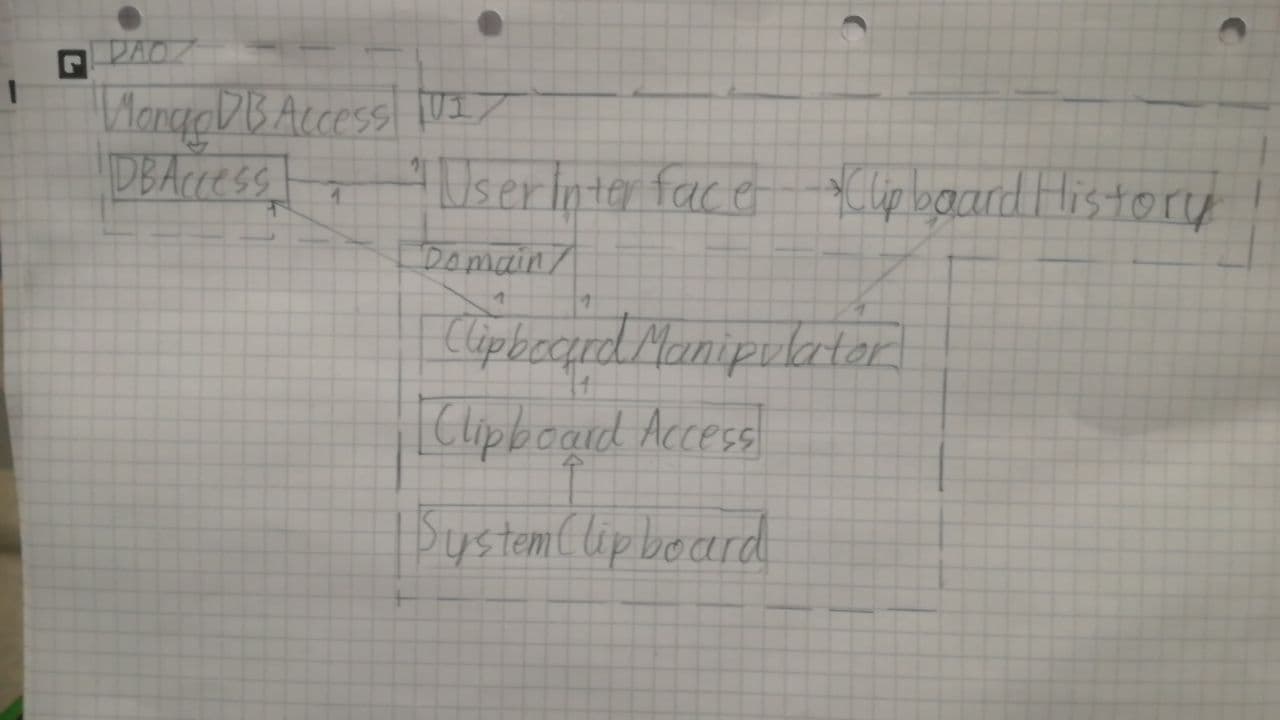 DAO/
MongoDBAccess
UI/
DBAccess
1
1
UserInterface
ClipboardHistory
1
1
Domain/
1
1
1
ClipboardManipulator
1
Clipboard Access
SystemClipboard